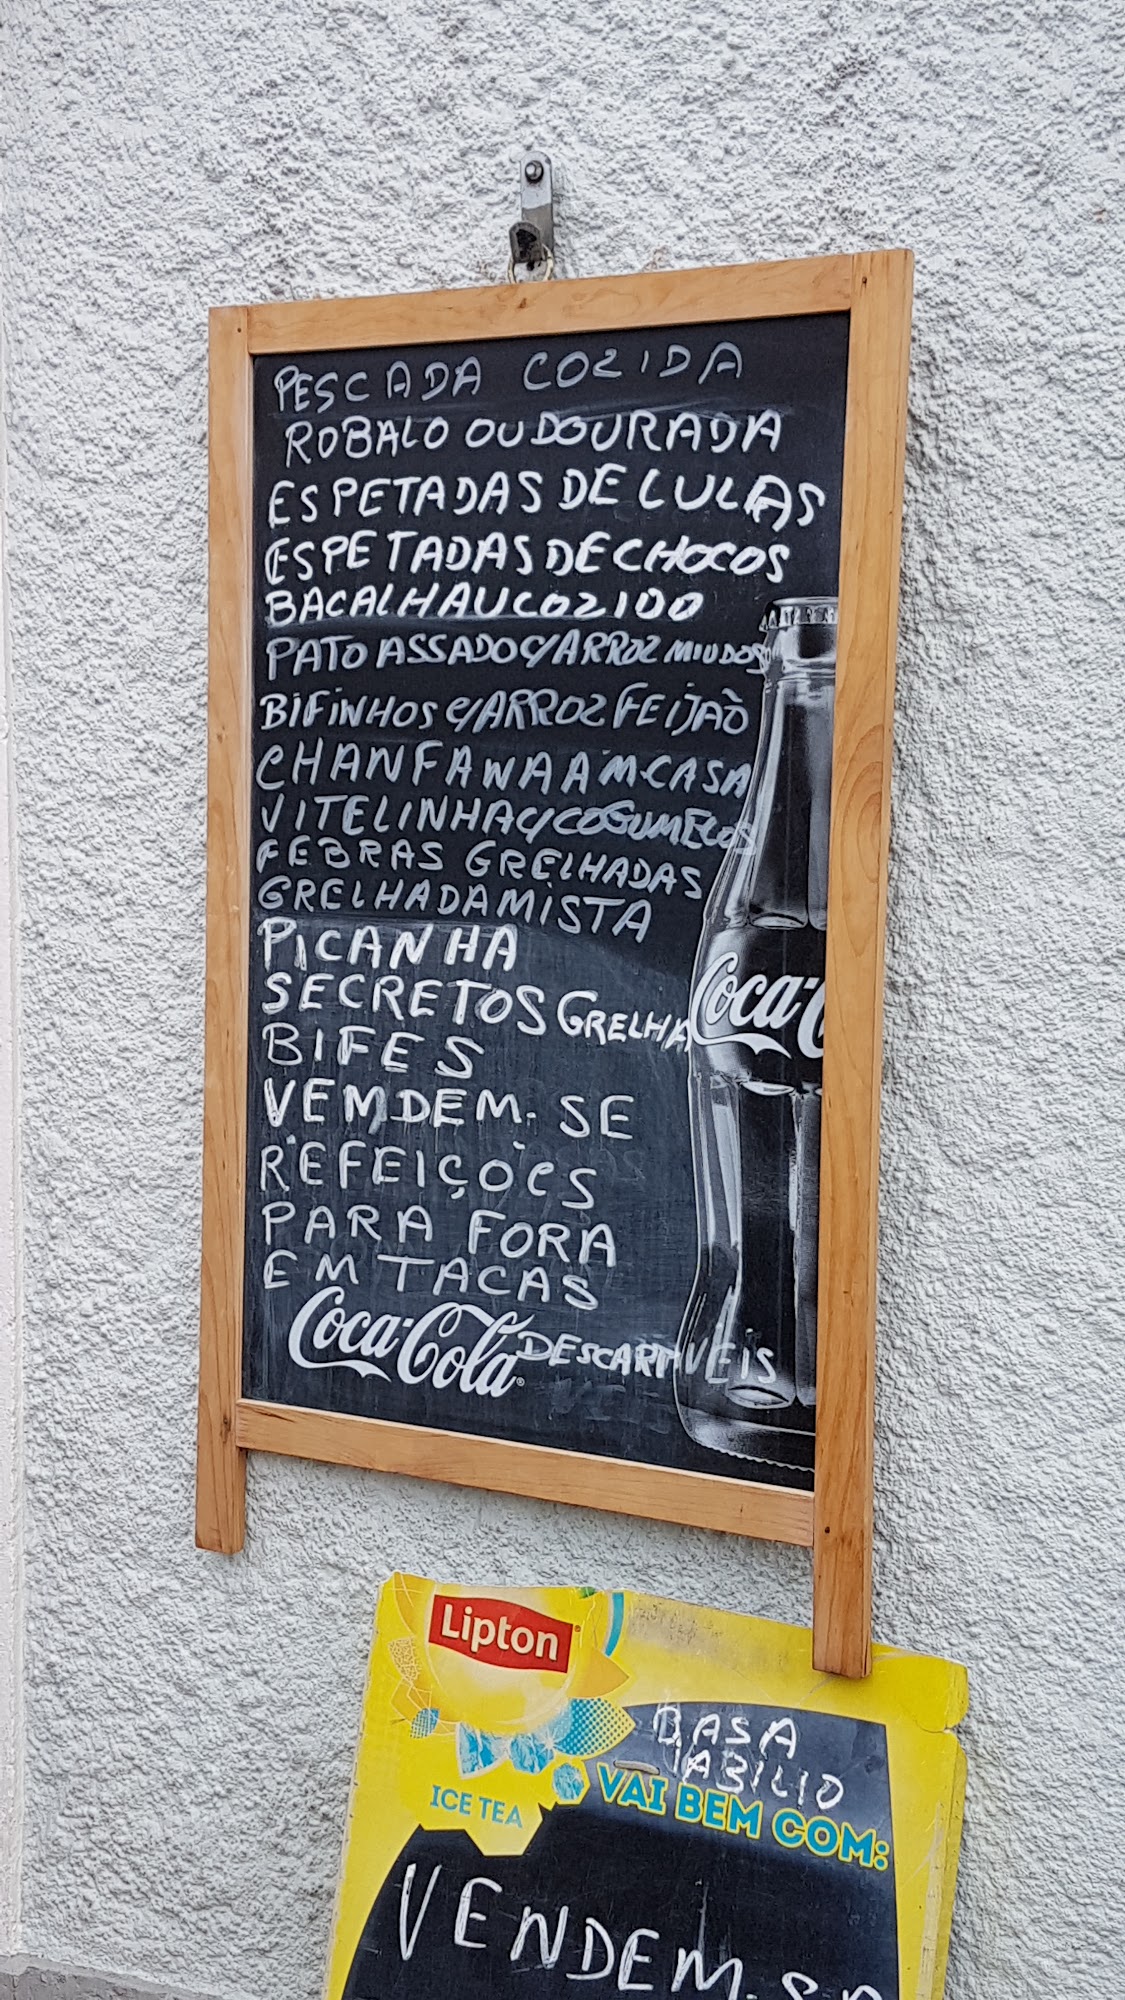 PESCADA COZIDA
ROBALO OU DOURADA
ESPETADAS DE LULAS
ESPETADAS DE CHOCOS
BACALHAU COZIDO
PATO ASSADO C/ARROZ MIUDOS
BIFINHOS C/ARROZ FEIJÃO
CHANFANA À M. CASA
VITELINHA C/COGUMELOS
FEBRAS GRELHADAS
GRELHADA MISTA
PICANHA
SECRETOS GRELHA
BIFES
VEMDEM-SE
REFEIÇÕES
PARA FORA
EM TACAS
DESCARTAVÉIS
Coca-Cola
Coca-C
Lipton
ICE TEA
VAI BEM COM:
VENDEM-SE